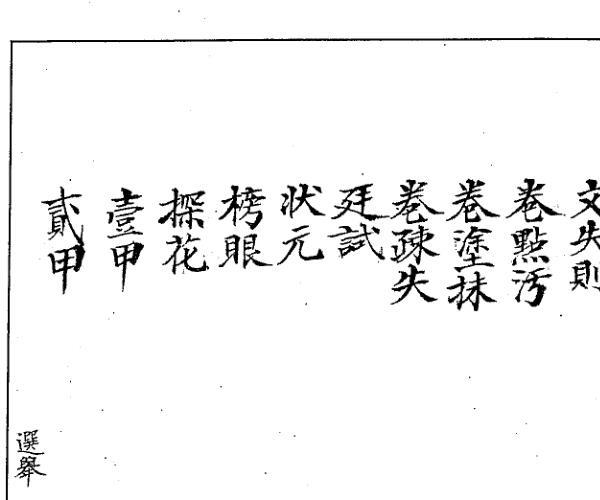 文失則
卷點汚
卷塗抹
卷疎失
廷試
状元
榜眼
探花
壹甲
貳甲
選舉